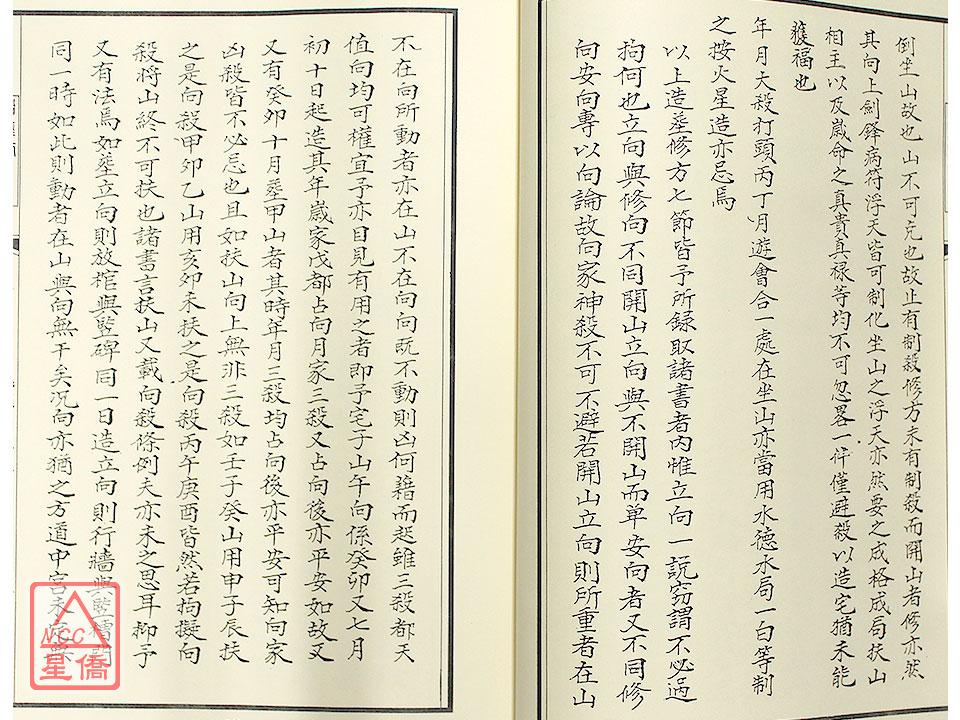 倒坐山故也山不可克也故止有制殺修方未有制殺而開山者修亦然
其向上劍鋒病符浮天皆可制化坐山之浮天亦然要之成格成局扶山
相主以及歲命之真貴真祿等均不可忽畧一件僅避殺以造宅猶未能
獲福也
年月大殺打頭丙丁月遊會合一處在坐山亦當用水德水局一白等制
之按火星造亦忌焉
以上造塟修方七節皆予所錄取諸書者內惟立向一說竊謂不必過
拘何也立向與修向不同開山立向與不開山而單安向者又不同修
向安向專以向論故向家神殺不可不避若開山立向則所重者在山
不在向所動者亦在山不在向向既不動則凶何藉而起雖三殺都天
值向均可權宜予亦目見有用之者即予宅子山午向係癸卯又七月
初十日起造其年歲家戊都占向月家三殺又占向後亦平安如故又
又有癸卯十月塟甲山者其時年月三殺均占向後亦平安可知向家
凶殺皆不必忌也且如扶山向上無非三殺如壬子癸山用申子辰扶
之是向殺甲卯乙山用亥卯未扶之是向殺丙午庚酉皆然若拘擬向
殺將山終不可扶也諸書言扶山又載向殺條例夫亦未之思耳抑予
又有法焉如塟立向則放棺與豎碑同一日造立向則行牆與豎
同一時如此則動者在山與向無干矣况向亦猶之方道中宮未
NCC
星僑